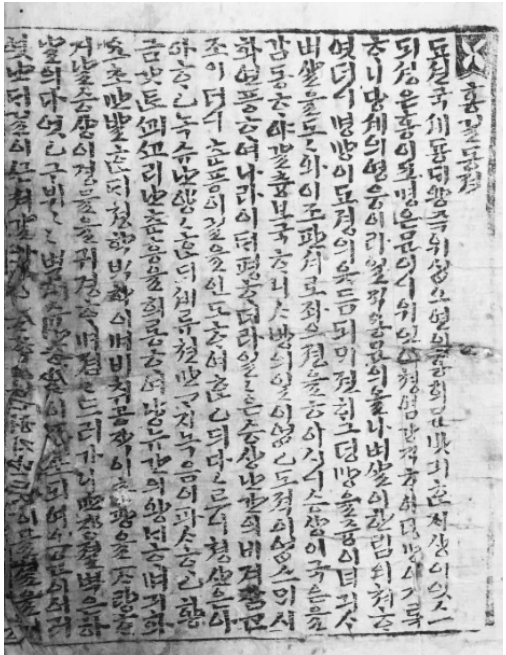 홍길동젼
됴션국 셰둉ᄃᆡ왕 즉위 십오연의 홍희문 밧긔 ᄒᆞᆫ ᄌᆡ상이 잇스
되 셩은 홍이요 명은 문이니 위인이 쳥염강직ᄒᆞ여 덕망이 거록
ᄒᆞ니 당셰의 영웅이라 일직 용문의 올나 벼살이 한림의 쳐ᄒᆞ
엿더니 명망이 됴졍의 읏듬되ᄆᆡ 젼하 그 덕망을 승이 녀긔사
벼살을 도도와 이조판셔로 좌으졍을 ᄒᆞ이시니 승상이 국은을
감동ᄒᆞ야 갈츙보국ᄒᆞ니 사방의 일이 업고 도젹이 업스ᄆᆡ 시
화연풍ᄒᆞ여 나라이 ᄐᆡ평ᄒᆞ더라 일일은 승상 난간의 비겨 잠ᄭᅡᆫ
조이더니 한풍이 길을 인도ᄒᆞ여 ᄒᆞᆫ 고ᄃᆡ 다다르니 쳥산은 아
아ᄒᆞ고 녹슈ᄂᆞᆫ 양양ᄒᆞᆫᄃᆡ 셰류 쳔만 가지 녹음이 파사ᄒᆞ고 황
금 갓ᄐᆞᆫ ᄭᅬᄭᅩ리ᄂᆞᆫ 춘흥을 희롱ᄒᆞ여 양류간의 왕ᄂᆡᄒᆞ며 기화
요초 만발ᄒᆞᆫᄃᆡ 쳥학 ᄇᆡᆨ학이며 비취 공작이 츈광을 자랑ᄒᆞ
거날 승상이 경물을 귀경ᄒᆞ며 졈졈 드러가니 만장졀벽은 하
날의 다엿고 구뷔구뷔 벽계슈ᄂᆞᆫ 골골이 폭포되여 오운이 어러
엿ᄂᆞᆫᄃᆡ 길이 ᄭᅳᆫ쳐 갈